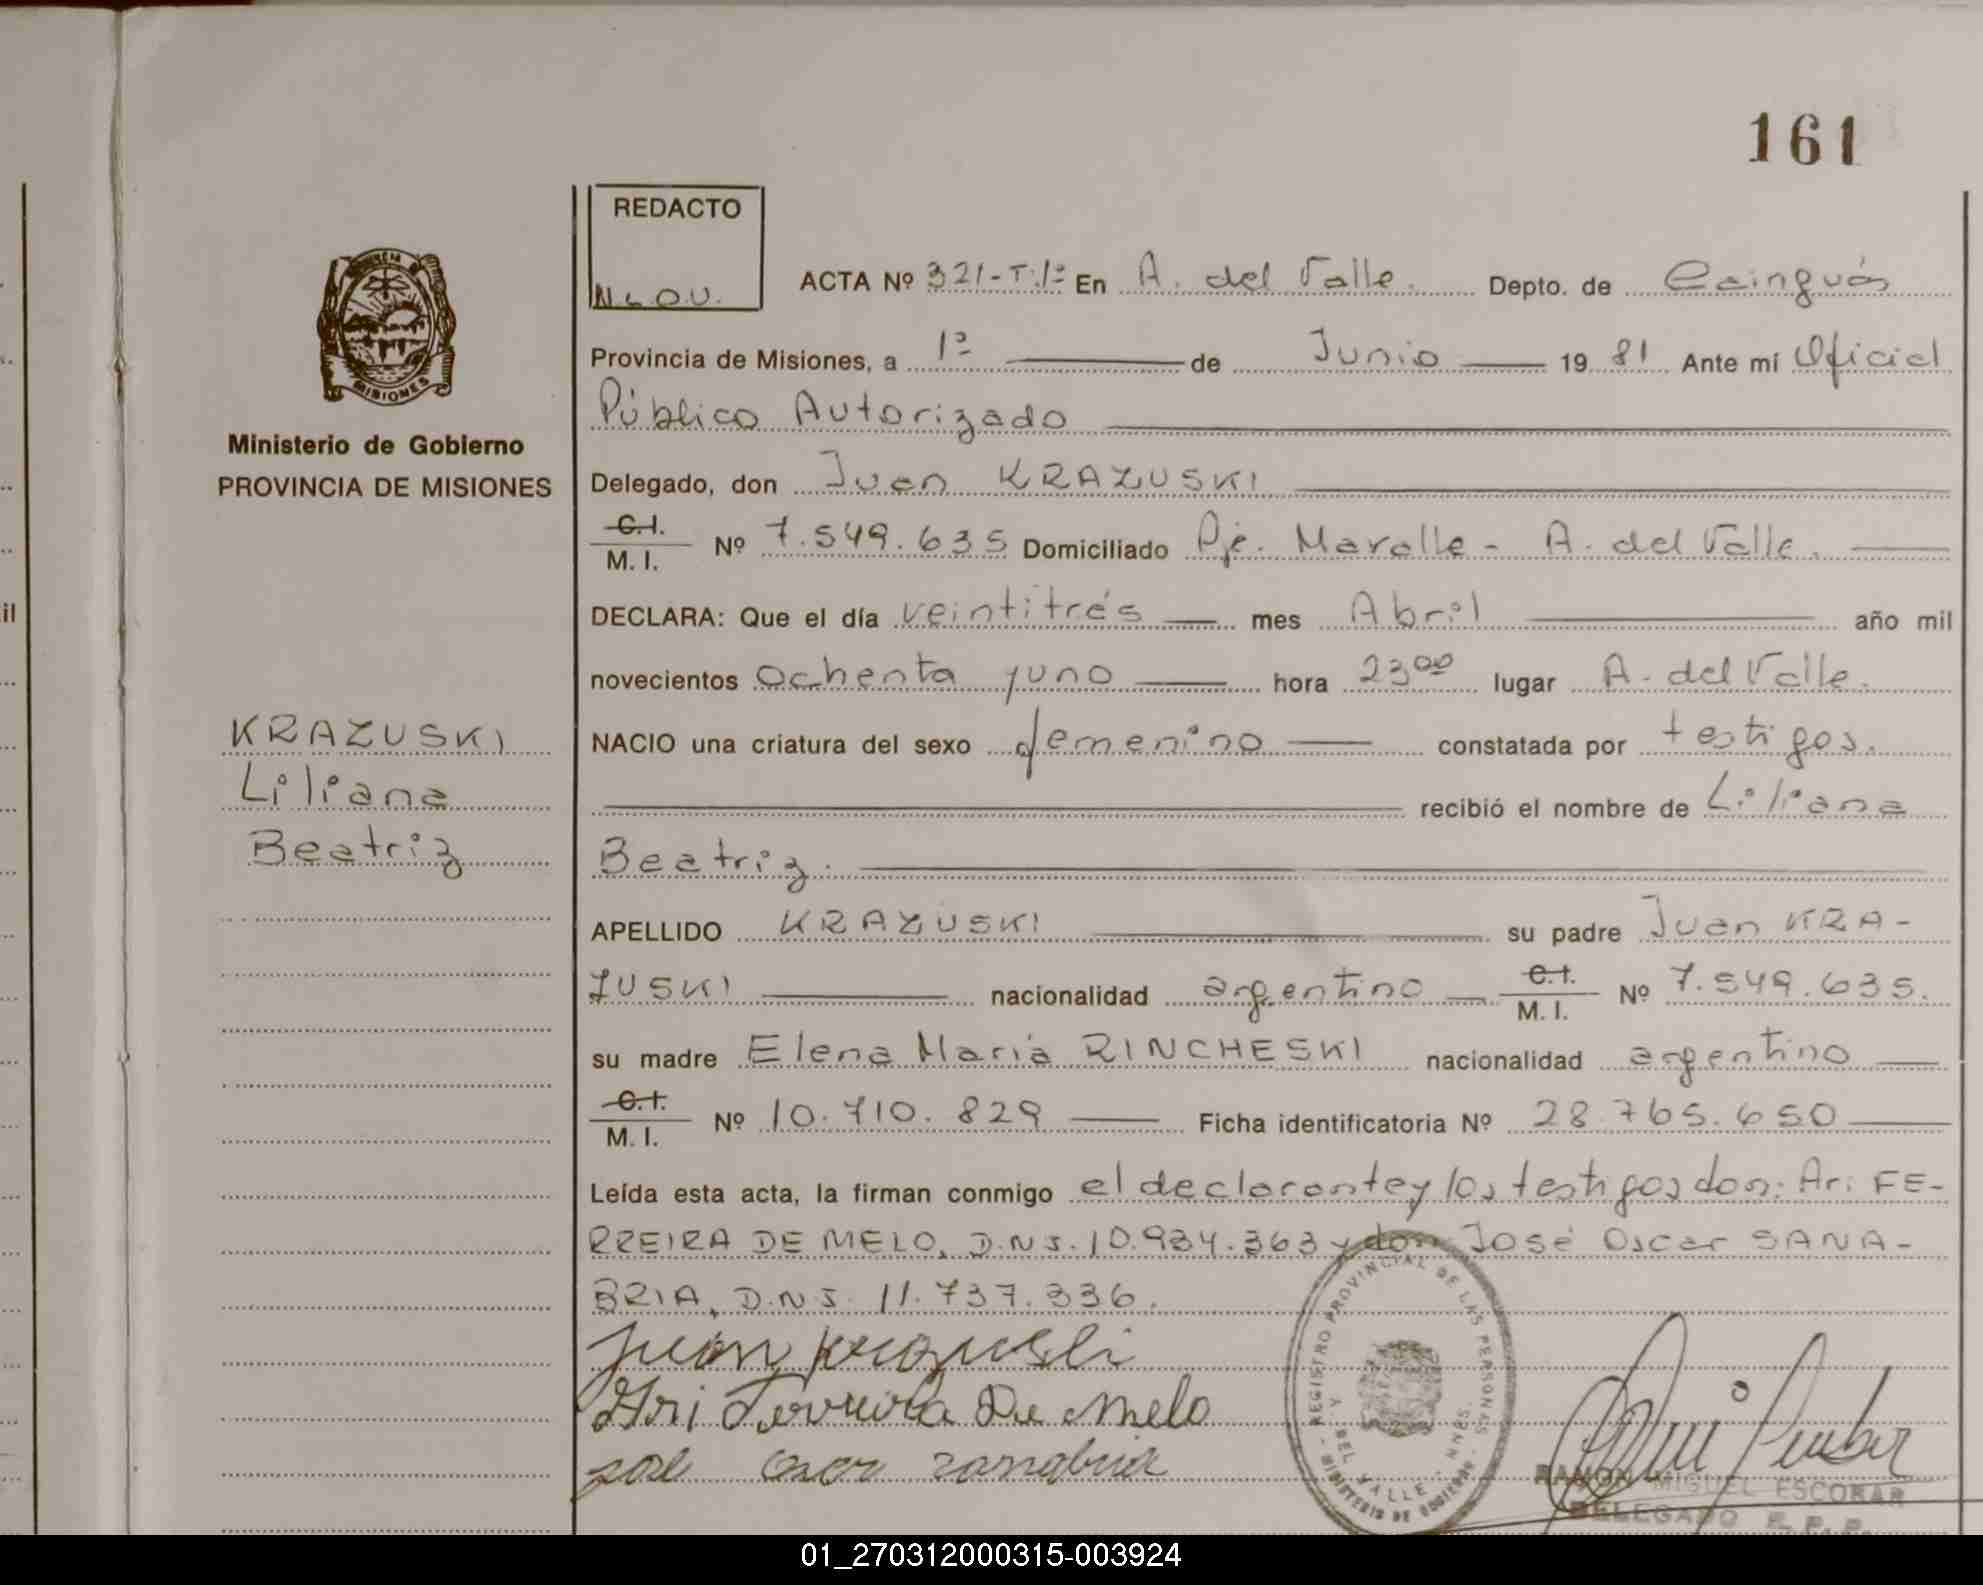 161
REDACTO
N.L.O.U.
ACTA Nº 321-T.1º En A. del Valle. Depto. de Cainguás
Provincia de Misiones, a 1º de Junio 19 81 Ante mí Oficial
Público Autorizado
Ministerio de Gobierno
PROVINCIA DE MISIONES
Delegado, don Juan KRAZUSKI
C.I. M. I. Nº 7.549.635 Domiciliado Pje. Maralle - A. del Valle.
DECLARA: Que el día veintitrés mes Abril año mil
novecientos ochenta y uno hora 23⁰⁰ lugar A. del Valle.
KRAZUSKI
Liliana
Beatriz
NACIO una criatura del sexo femenino constatada por testigos.
recibió el nombre de Liliana
Beatriz.
APELLIDO KRAZUSKI su padre Juan KRA-
ZUSKI nacionalidad argentino C.I. M. I. Nº 7.549.635.
su madre Elena Maria RINCHESKI nacionalidad argentino
C.I. M. I. Nº 10.710.829 Ficha identificatoria Nº 28.765.650
Leída esta acta, la firman conmigo el declarante y los testigos don: Ari FE-
RREIRA DE MELO, D.N.I. 10.934.363 y don José Oscar SANA-
BRIA, D.N.I. 11.737.336.
Juan Krazuski
Ari Ferreira De Melo
jose oscar sanabria
REGISTRO PROVINCIAL DE LAS PERSONAS
DEL VALLE - MNES.
MINISTERIO DE GOBIERNO
RAMON MIGUEL ESCOBAR
DELEGADO R. P. P.
01_270312000315-003924